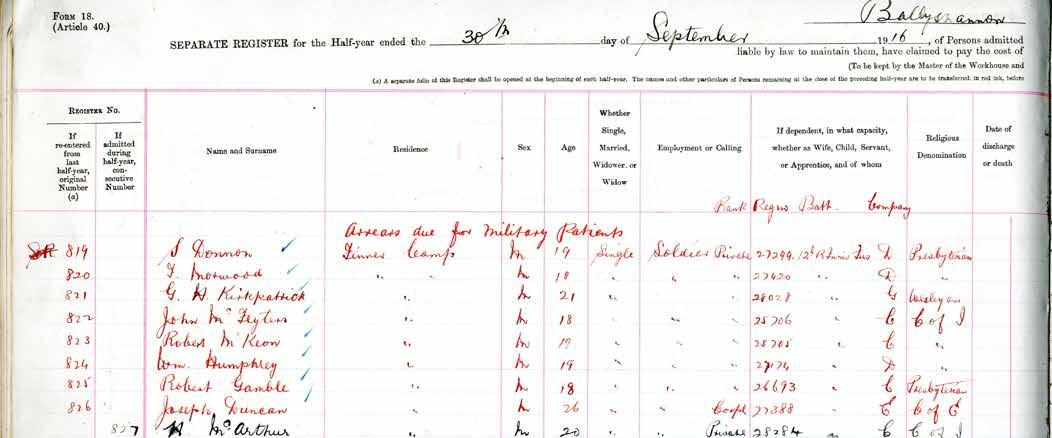 Form 18.
(Article 40.)
Ballyshannon
SEPARATE REGISTER for the Half-year ended the 30th day of September 1916, of Persons admitted
liable by law to maintain them, have claimed to pay the cost of
(To be kept by the Master of the Workhouse and
(a) A separate folio of this Register shall be opened at the beginning of each half-year. The names and other particulars of Persons remaining at the close of the preceding half-year are to be transferred, in red ink, before
Register No.
If re-entered from last half-year, original Number (a)
If admitted during half-year, consecutive Number
Name and Surname
Residence
Sex
Age
Whether Single, Married, Widower, or Widow
Employment or Calling
If dependent, in what capacity, whether as Wife, Child, Servant, or Apprentice, and of whom
Religious Denomination
Date of discharge or death
Rank Regno Batt. Company
Arrears due for Military Patients
819 S Donnon Finner Camp M 19 Single Soldier Private 27299 12th R Innis Fus D Presbyterian
820 F. Morwood " M 18 " " " 27420 " " D "
821 G. H. Kirkpatrick " M 21 " " " 28028 " G Wesleyan
822 John McFeyters " M 18 " " " 25706 " C C of I
823 Robert McKeon " M 19 " " " 25705 " C "
824 Wm. Humphrey " M 19 " " " 27174 " D "
825 Robert Gamble " M 18 " " " 26693 " C Presbyterian
826 Joseph Duncan " M 26 " " Corpl 27388 " E C of E
827 H McArthur " M 20 " " Private 28284 " C C of I